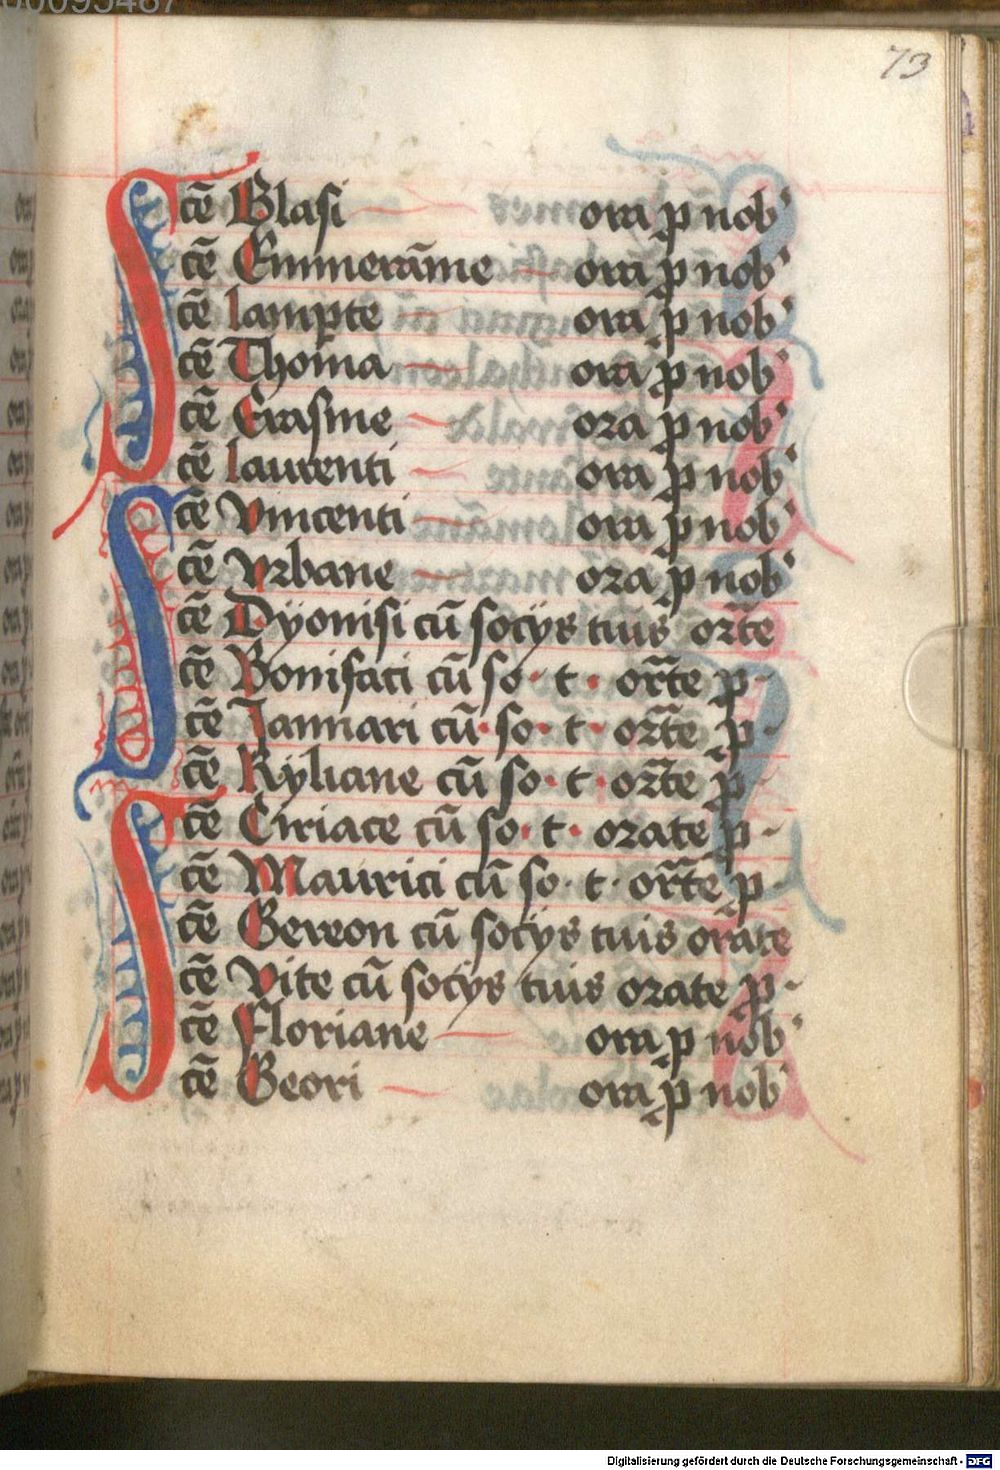 73
Scē Blasi ora p nob'
cē Emmerāme ora p nob'
cē lamꝑte ora p nob'
cē Thoma ora p nob'
cē Erasme ora p nob'
cē laurenti ora p nob'
Scē Vincenti ora p nob'
cē Vrbane ora p nob'
cē Dÿonisi cū socÿs tuis or̄te
cē Bonifaci cū so · t · or̄te p
cē Januari cū · so · t · or̄te p
cē Kÿliane cū so · t · or̄te p
Scē Ciriace cū so · t · orate p
cē Maurici cū so · t · or̄te p
cē Gereon cū socÿs tuis orate
cē Vite cū socÿs tuis orate p
cē Floriane ora p nob'
cē Geori ora p nob'
Digitalisierung gefördert durch die Deutsche Forschungsgemeinschaft - DFG